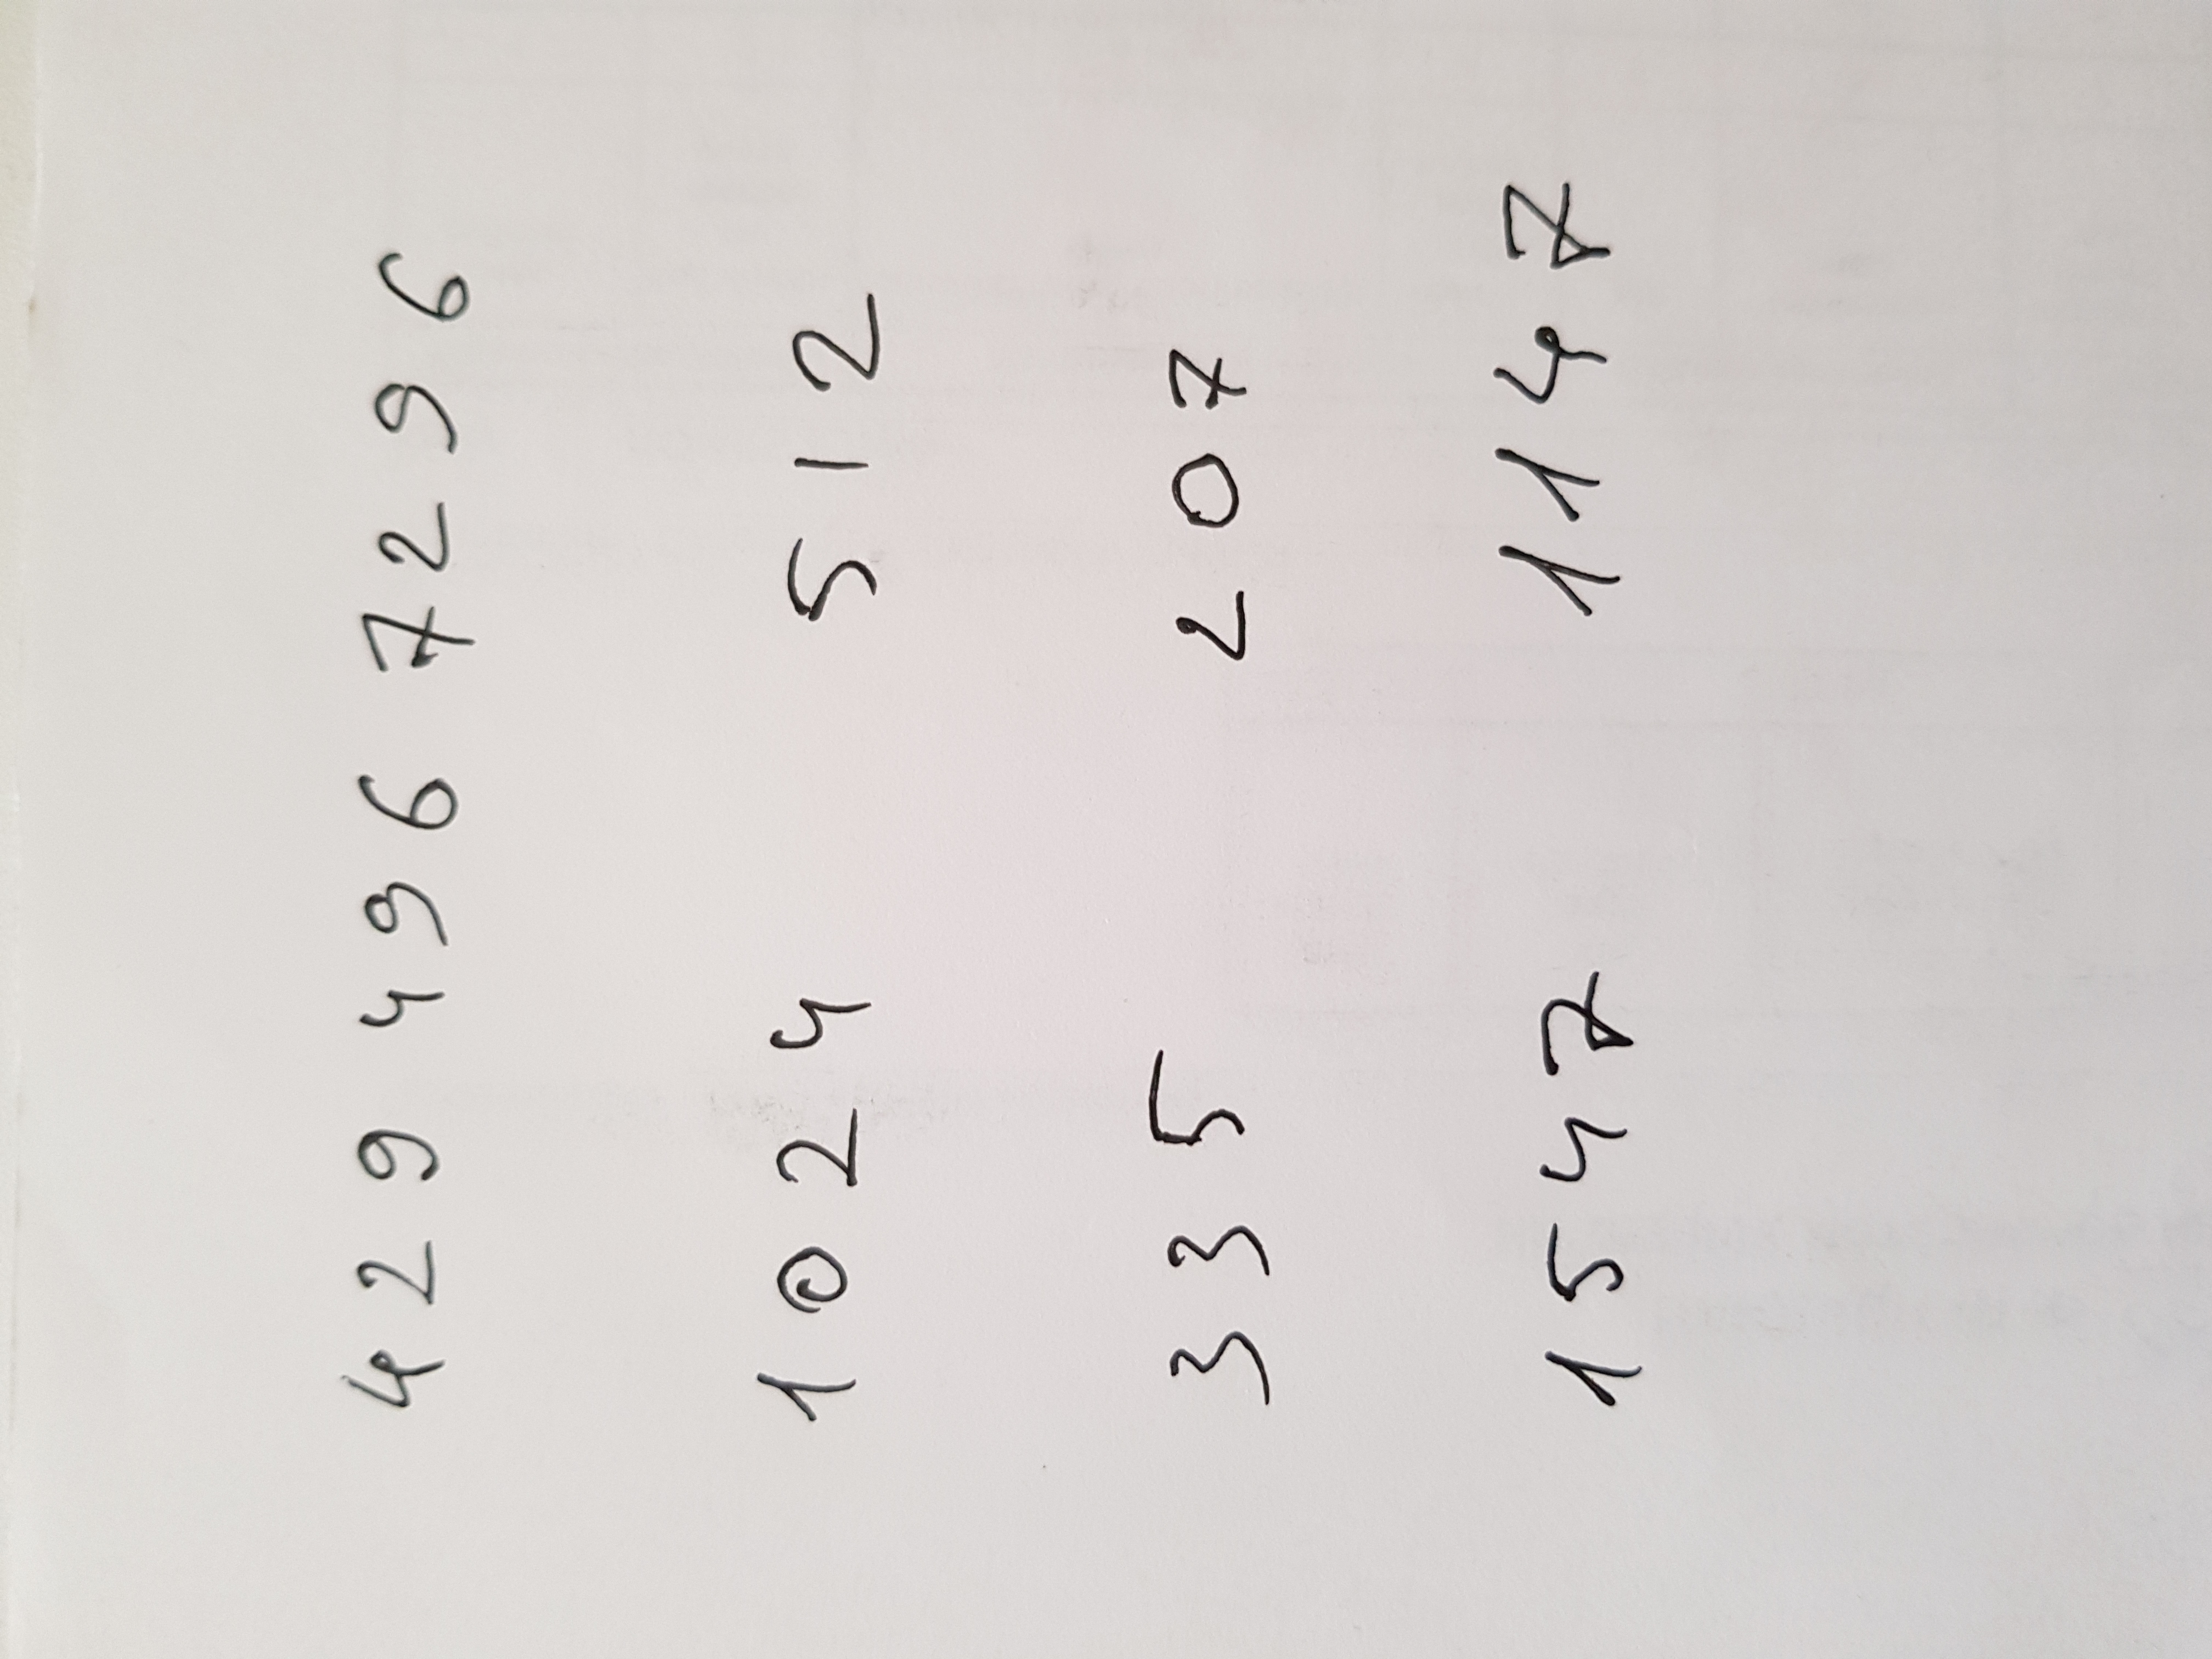 429 496 7296
1024 512
335 207
1547 1147